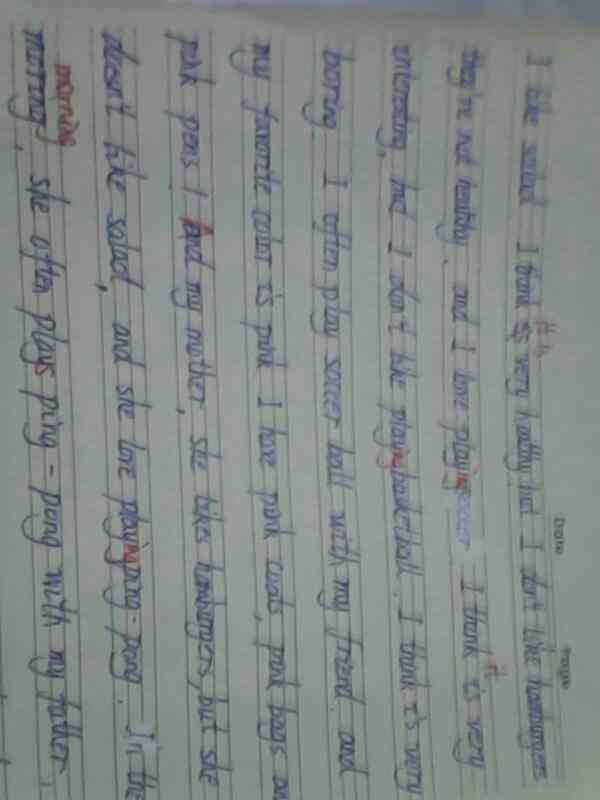 I like salad I think it is very healthy but I don't like hamburgers
they're not healthy and I love playing soccer I think it is very
interesting, but I don't like playing basketball I think it's very
boring I often play soccer ball with my friend and
my favorite color is pink I have pink coats, pink bags an
pink pens ! And my mother, she likes hamburgers, but she
doesn't like salad, and she love playing ping-pong. In the
morning
morning, she often plays ping-pong with my father.